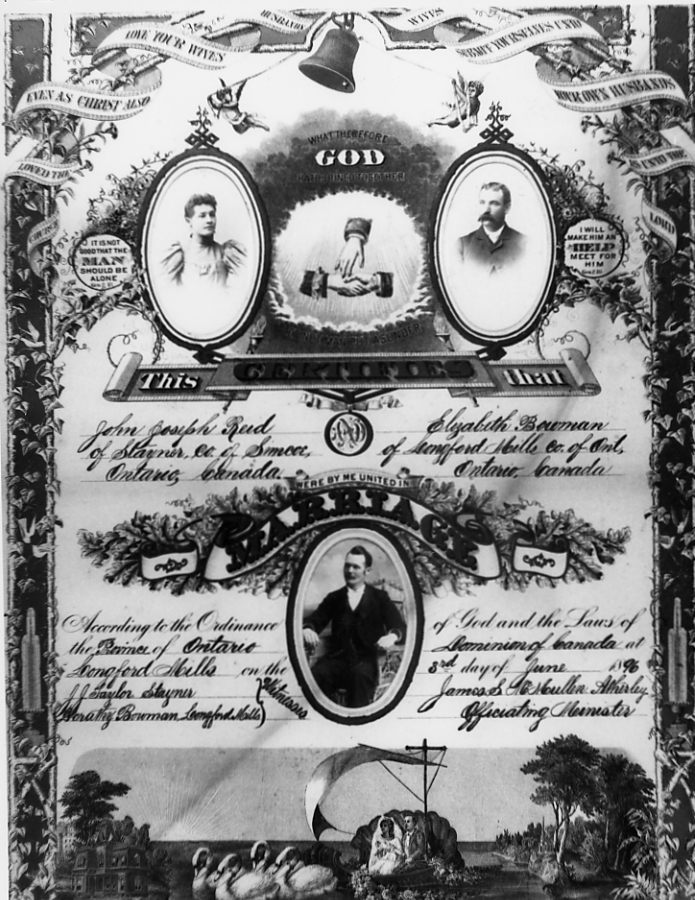 HUSBANDS
WIVES
LOVE YOUR WIVES
SUBMIT YOURSELVES UNTO
EVEN AS CHRIST ALSO
YOUR OWN HUSBANDS
LOVED THE
AS UNTO THE
CHURCH
LORD
WHAT THEREFORE
GOD
HATH JOINED TOGETHER
IT IS NOT
GOOD THAT THE
MAN
SHOULD BE
ALONE
I WILL
MAKE HIM AN
HELP
MEET FOR
HIM
LET NOT MAN PUT ASUNDER
This CERTIFIES that
John Joseph Reid
of Stayner, Co. of Simcoe,
Ontario, Canada
Elizabeth Bowman
of Longford Mills Co. of Ont,
Ontario, Canada
WERE BY ME UNITED IN
MARRIAGE
According to the Ordinance of God and the Laws of
the Province of Ontario Dominion of Canada at
Longford Mills on the 3rd day of June 1896
J.J. Taylor Stayner
Bowman, Longford Mills
Witnesses
James S. McMullen Atherley
Officiating Minister